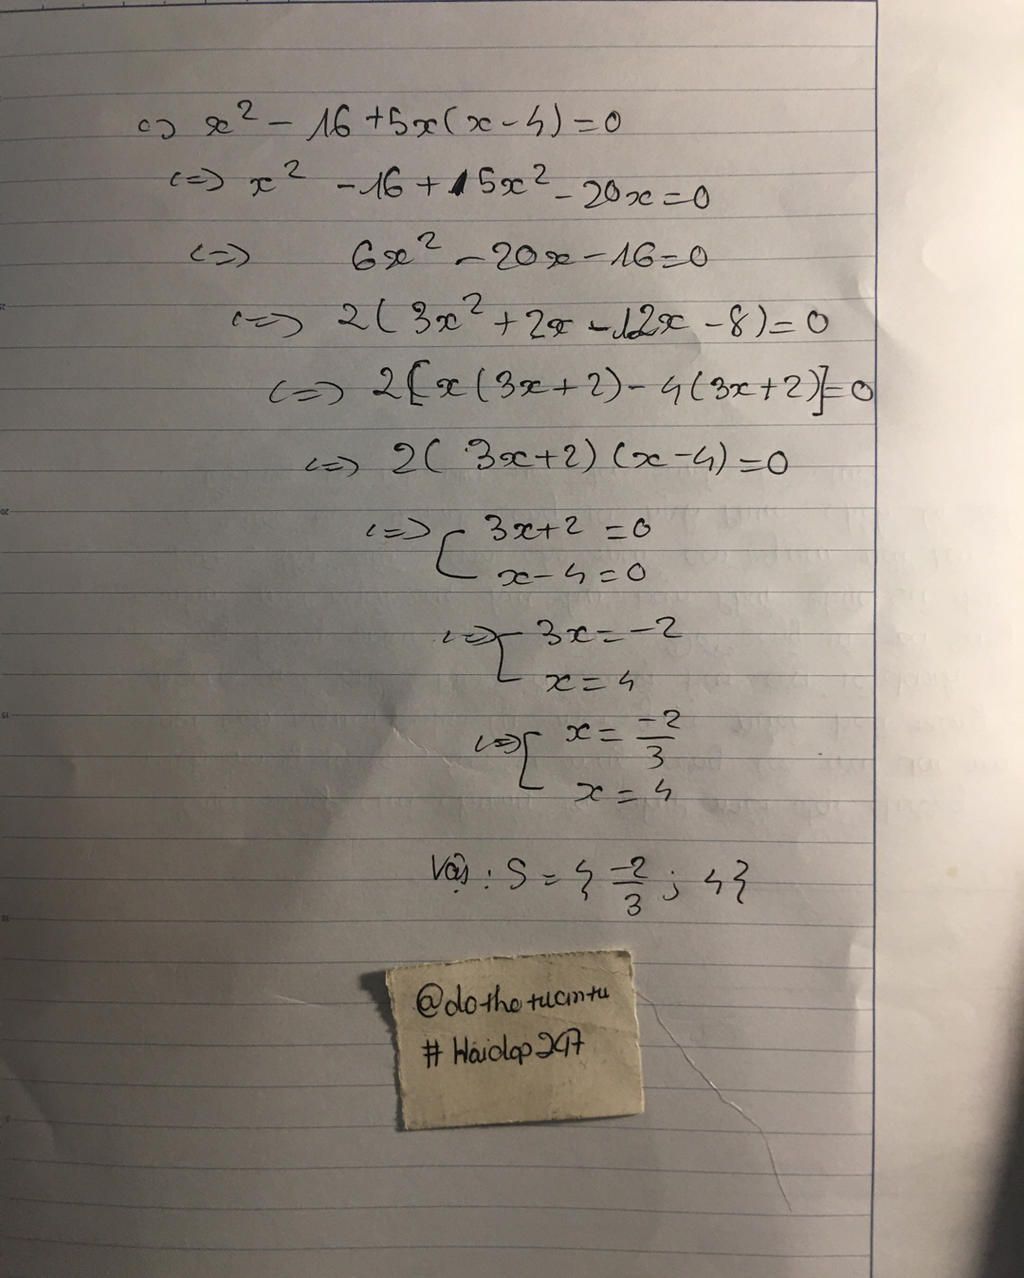 <=> x² - 16 + 5x(x - 4) = 0
<=> x² - 16 + 5x² - 20x = 0
<=> 6x² - 20x - 16 = 0
<=> 2(3x² + 2x - 12x - 8) = 0
<=> 2[x(3x + 2) - 4(3x + 2)] = 0
<=> 2(3x + 2)(x - 4) = 0
<=> [ 3x + 2 = 0
x - 4 = 0
<=> [ 3x = -2
x = 4
<=> [ x = -2/3
x = 4
Vậy : S = { -2/3 ; 4 }
@dothetuantu
#Hoidap247